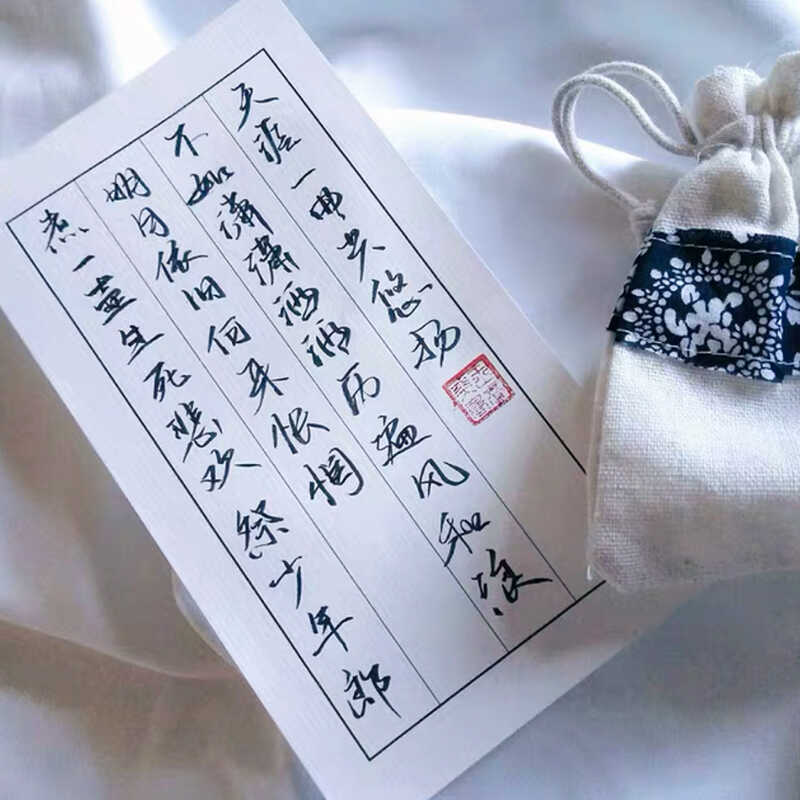 煮一壶生死悲欢祭少年郎
明月依旧何来怅惘
不如潇潇洒洒历遍风和浪
天涯一曲共悠扬